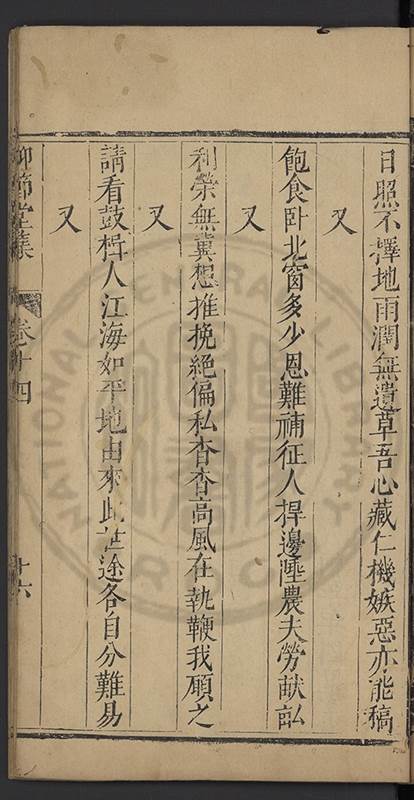 日照不擇地雨潤無遺草吾心藏仁機嫉惡亦能稿
又
飽食卧北窗多少恩難補征人捍邊陲農夫勞献畆
又
利榮無冀想推挽絕偏私杳杳高風在執鞭我願之
又
請看鼓枻人江海如平地由來此世途各自分難易
又
仰節堂集
卷十四
十六
NATIONAL CENTRAL LIBRARY